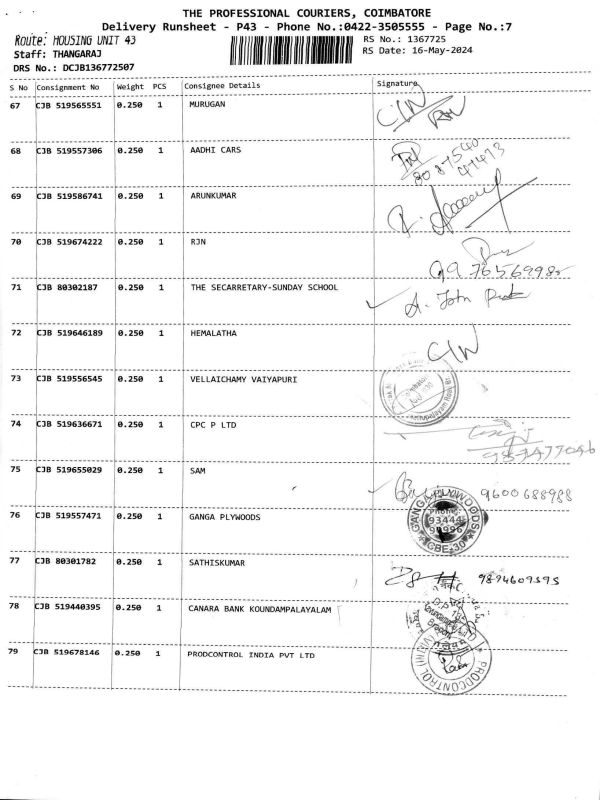 THE PROFESSIONAL COURIERS, COIMBATORE
Delivery Runsheet - P43 - Phone No.:0422-3505555 - Page No.:7
Route: HOUSING UNIT 43 RS No.: 1367725
Staff: THANGARAJ RS Date: 16-May-2024
DRS No.: DCJB136772507
S No Consignment No Weight PCS Consignee Details Signature
67 CJB 519565551 0.250 1 MURUGAN
68 CJB 519557306 0.250 1 AADHI CARS
80 87540
47473
69 CJB 519586741 0.250 1 ARUNKUMAR
70 CJB 519674222 0.250 1 RJN
71 CJB 80302187 0.250 1 THE SECARRETARY-SUNDAY SCHOOL
A. John
72 CJB 519646189 0.250 1 HEMALATHA
73 CJB 519556545 0.250 1 VELLAICHAMY VAIYAPURI
74 CJB 519636671 0.250 1 CPC P LTD
75 CJB 519655029 0.250 1 SAM 9600688988
76 CJB 519557471 0.250 1 GANGA PLYWOODS
GANGA PLYWOODS
Phone:
93444
CBE-30
77 CJB 80301782 0.250 1 SATHISKUMAR 9894609595
78 CJB 519440395 0.250 1 CANARA BANK KOUNDAMPALAYALAM
79 CJB 519678146 0.250 1 PRODCONTROL INDIA PVT LTD
PRODCONTROL (INDIA)